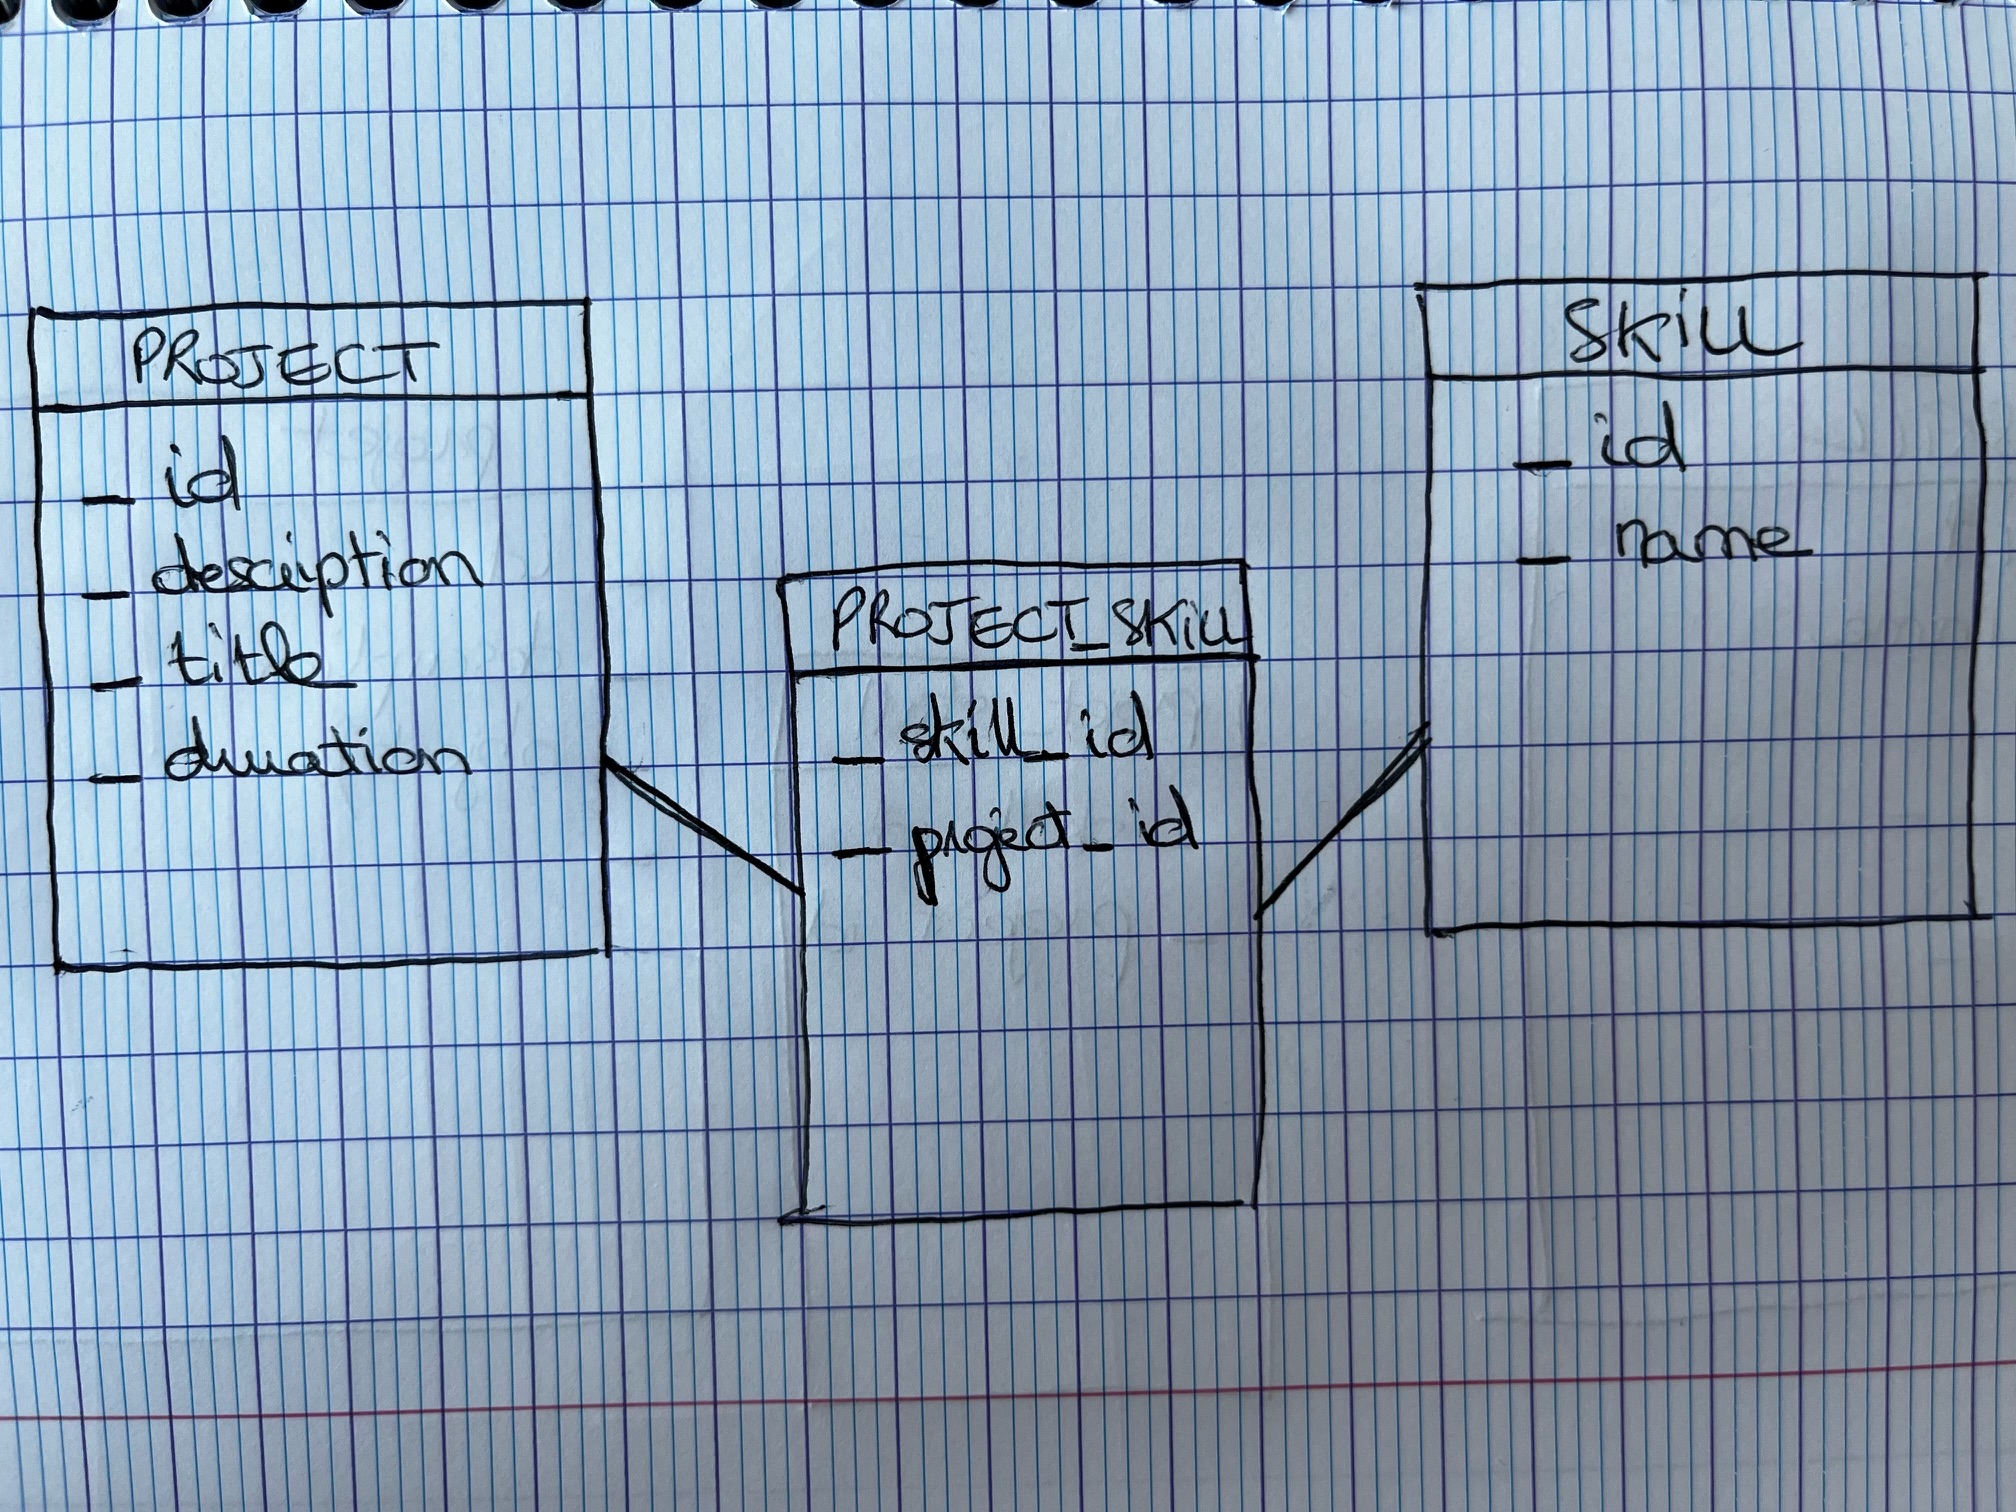 PROJECT
_ id
_ description
_ title
_ duration
PROJECT_SKILL
_ skill_id
_ project_id
SKILL
_ id
_ name